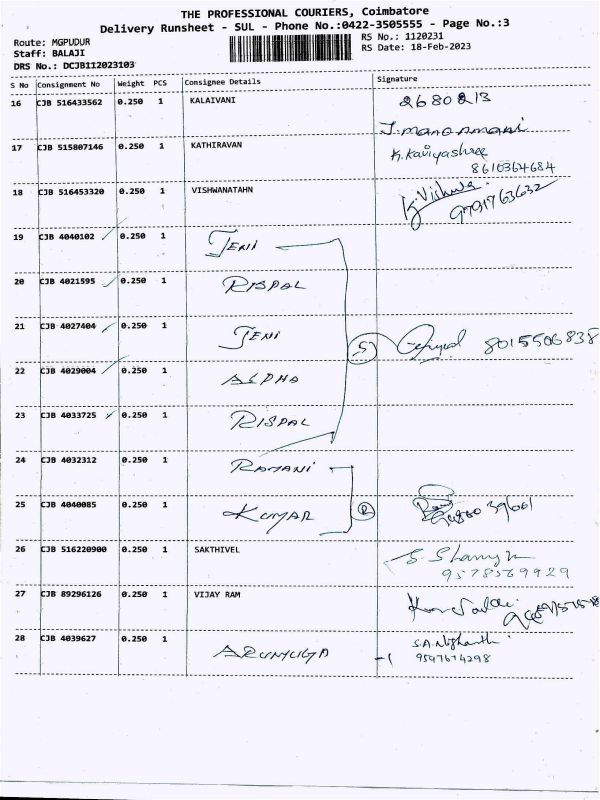 THE PROFESSIONAL COURIERS, Coimbatore
Delivery Runsheet - SUL - Phone No.:0422-3505555 - Page No.:3
Route: MGPUDUR
Staff: BALAJI
DRS No.: DCJB112023103
RS No.: 1120231
RS Date: 18-Feb-2023
S No Consignment No Weight PCS Consignee Details Signature
16 CJB 516433562 0.250 1 KALAIVANI 2680213
J. manonmani
17 CJB 515807146 0.250 1 KATHIRAVAN K. Kaviyashree
8610364684
18 CJB 516453320 0.250 1 VISHWANATAHN K. Vishwa
9791763632
19 CJB 4040102 0.250 1 JENI
20 CJB 4021595 0.250 1 RISPAL
21 CJB 4027404 0.250 1 JENI 5 8015506838
22 CJB 4029004 0.250 1 ALPHA
23 CJB 4033725 0.250 1 RISPAL
24 CJB 4032312 0.250 1 RAMANI
25 CJB 4040085 0.250 1 KUMAR 2
26 CJB 516220900 0.250 1 SAKTHIVEL
9578569929
27 CJB 89296126 0.250 1 VIJAY RAM
28 CJB 4039627 0.250 1 ARUMUGA
9597674298